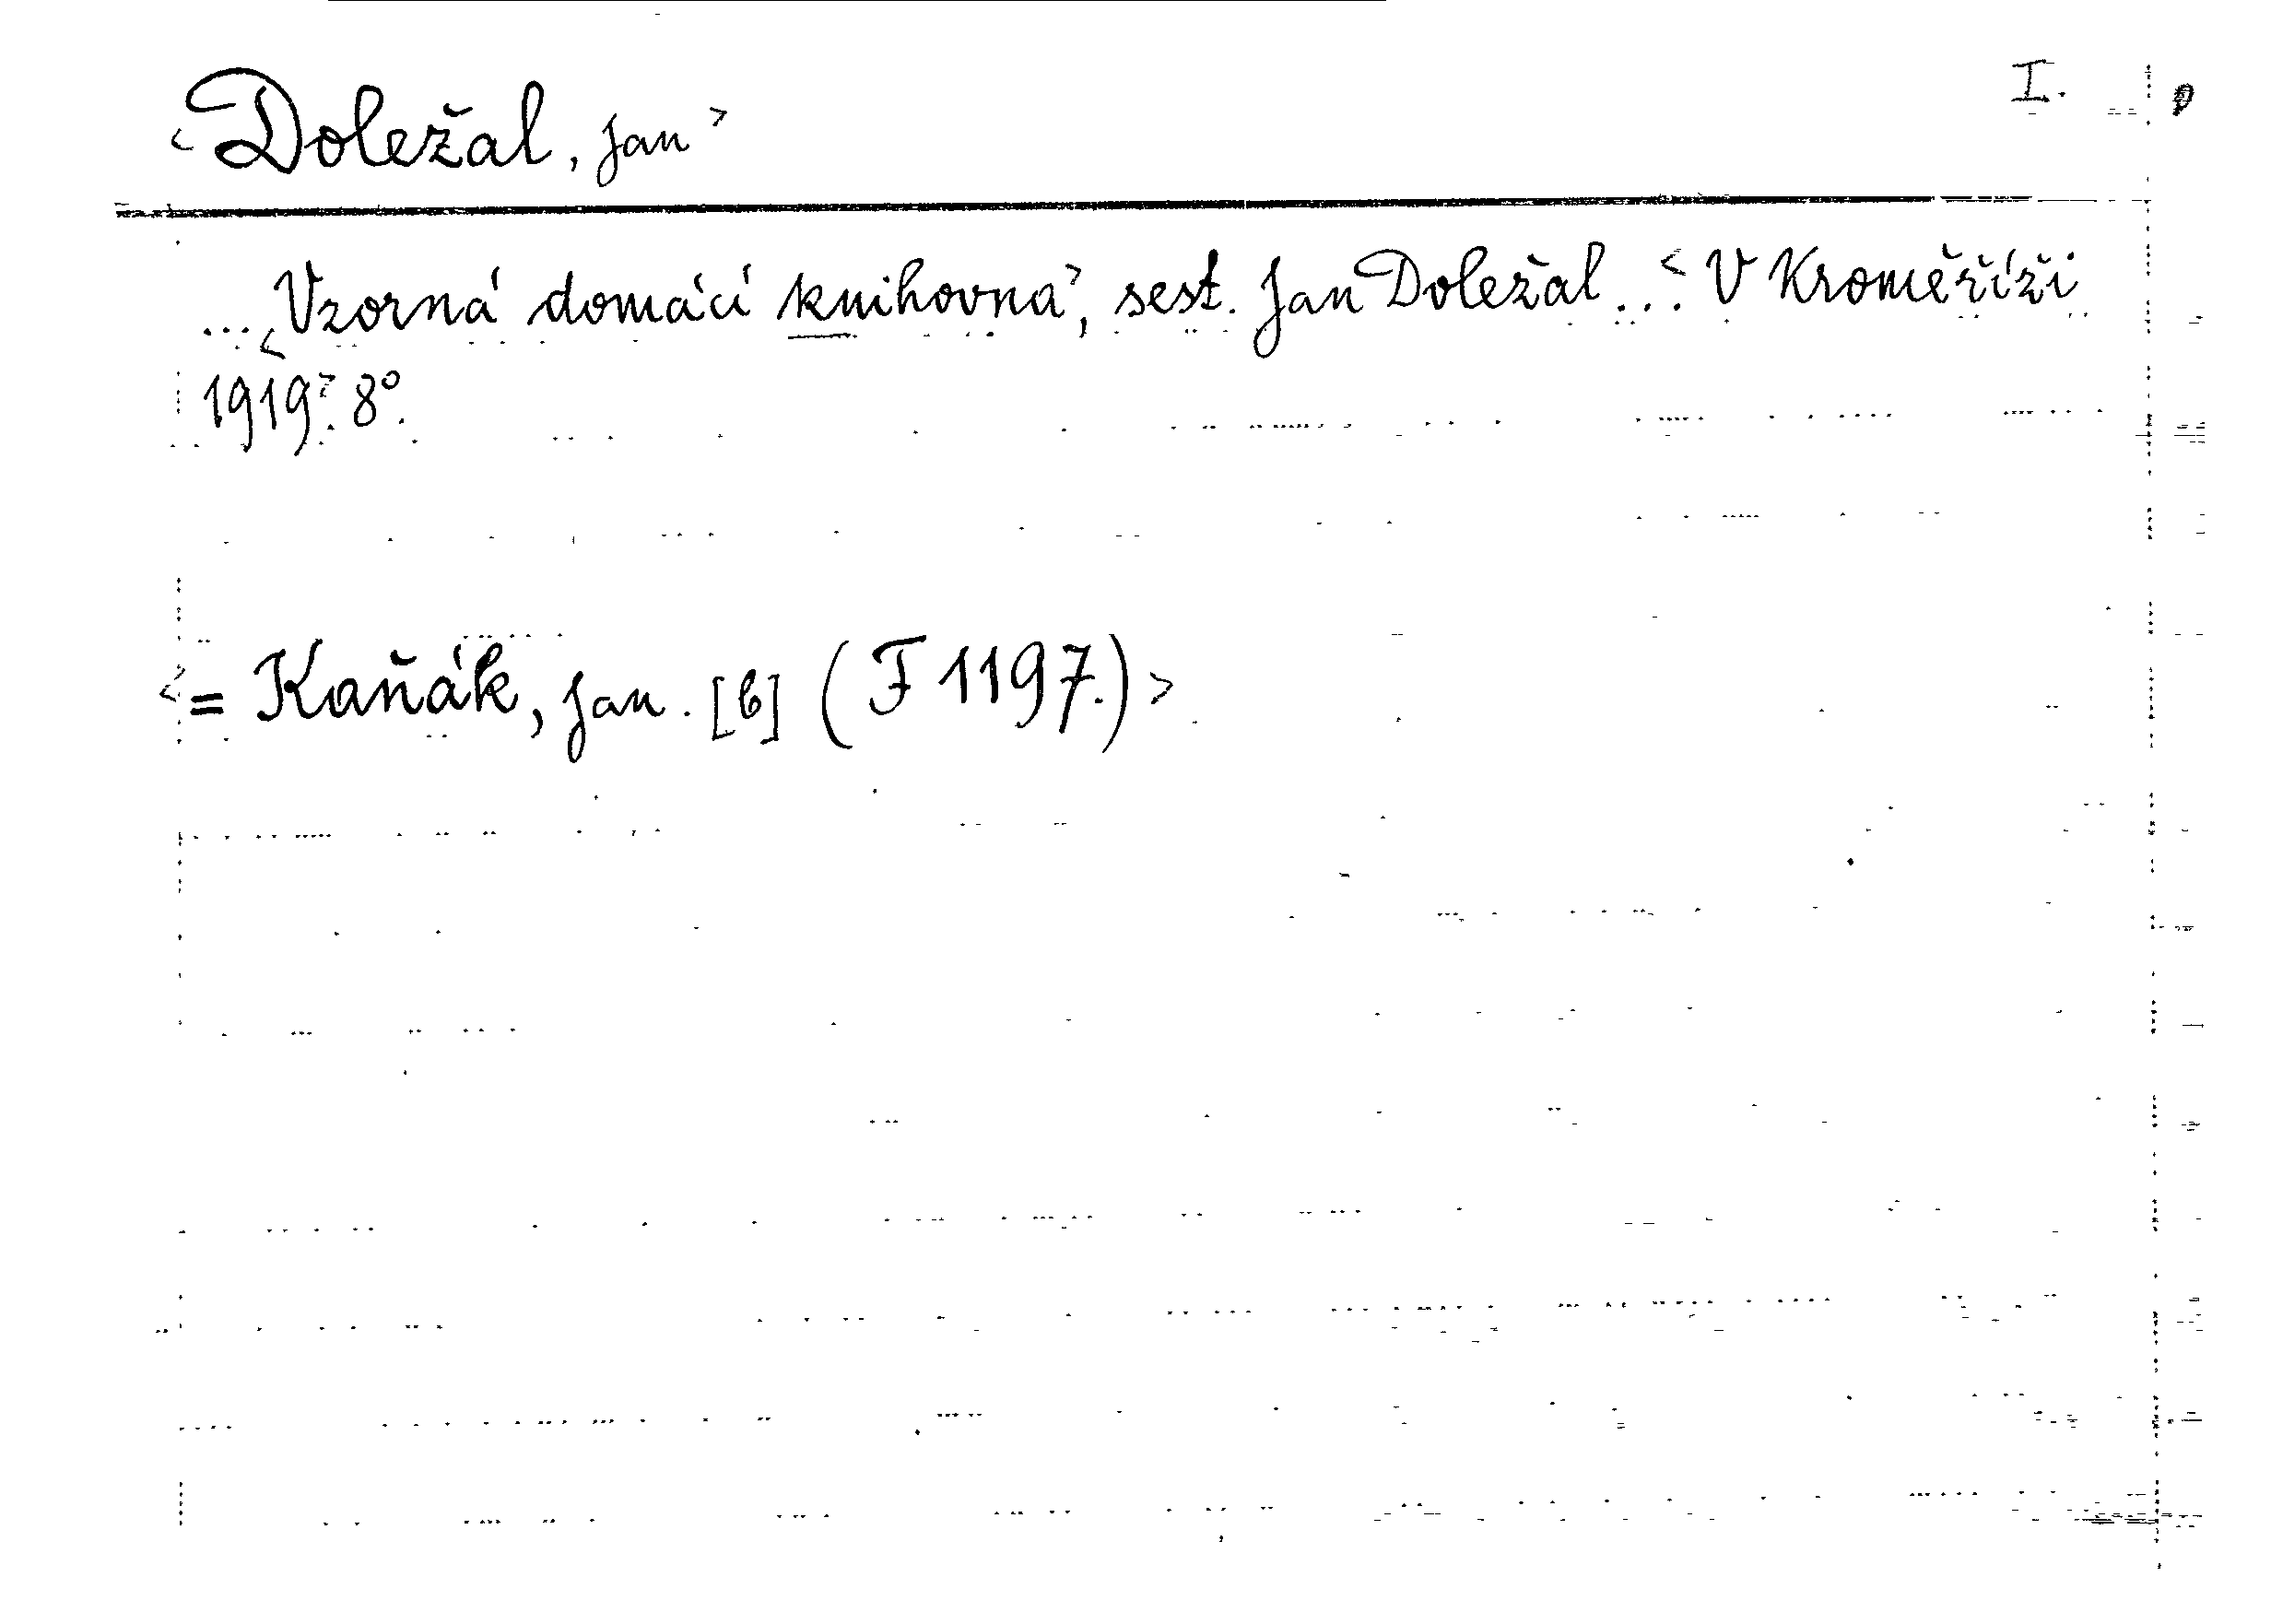 I.
<Doležal, Jan>
... <Vzorná domácí knihovna>, sest. Jan Doležal... <V Kroměříži
1919>. 8°.
<= Kaňák, Jan. [b] (F 1197.)>